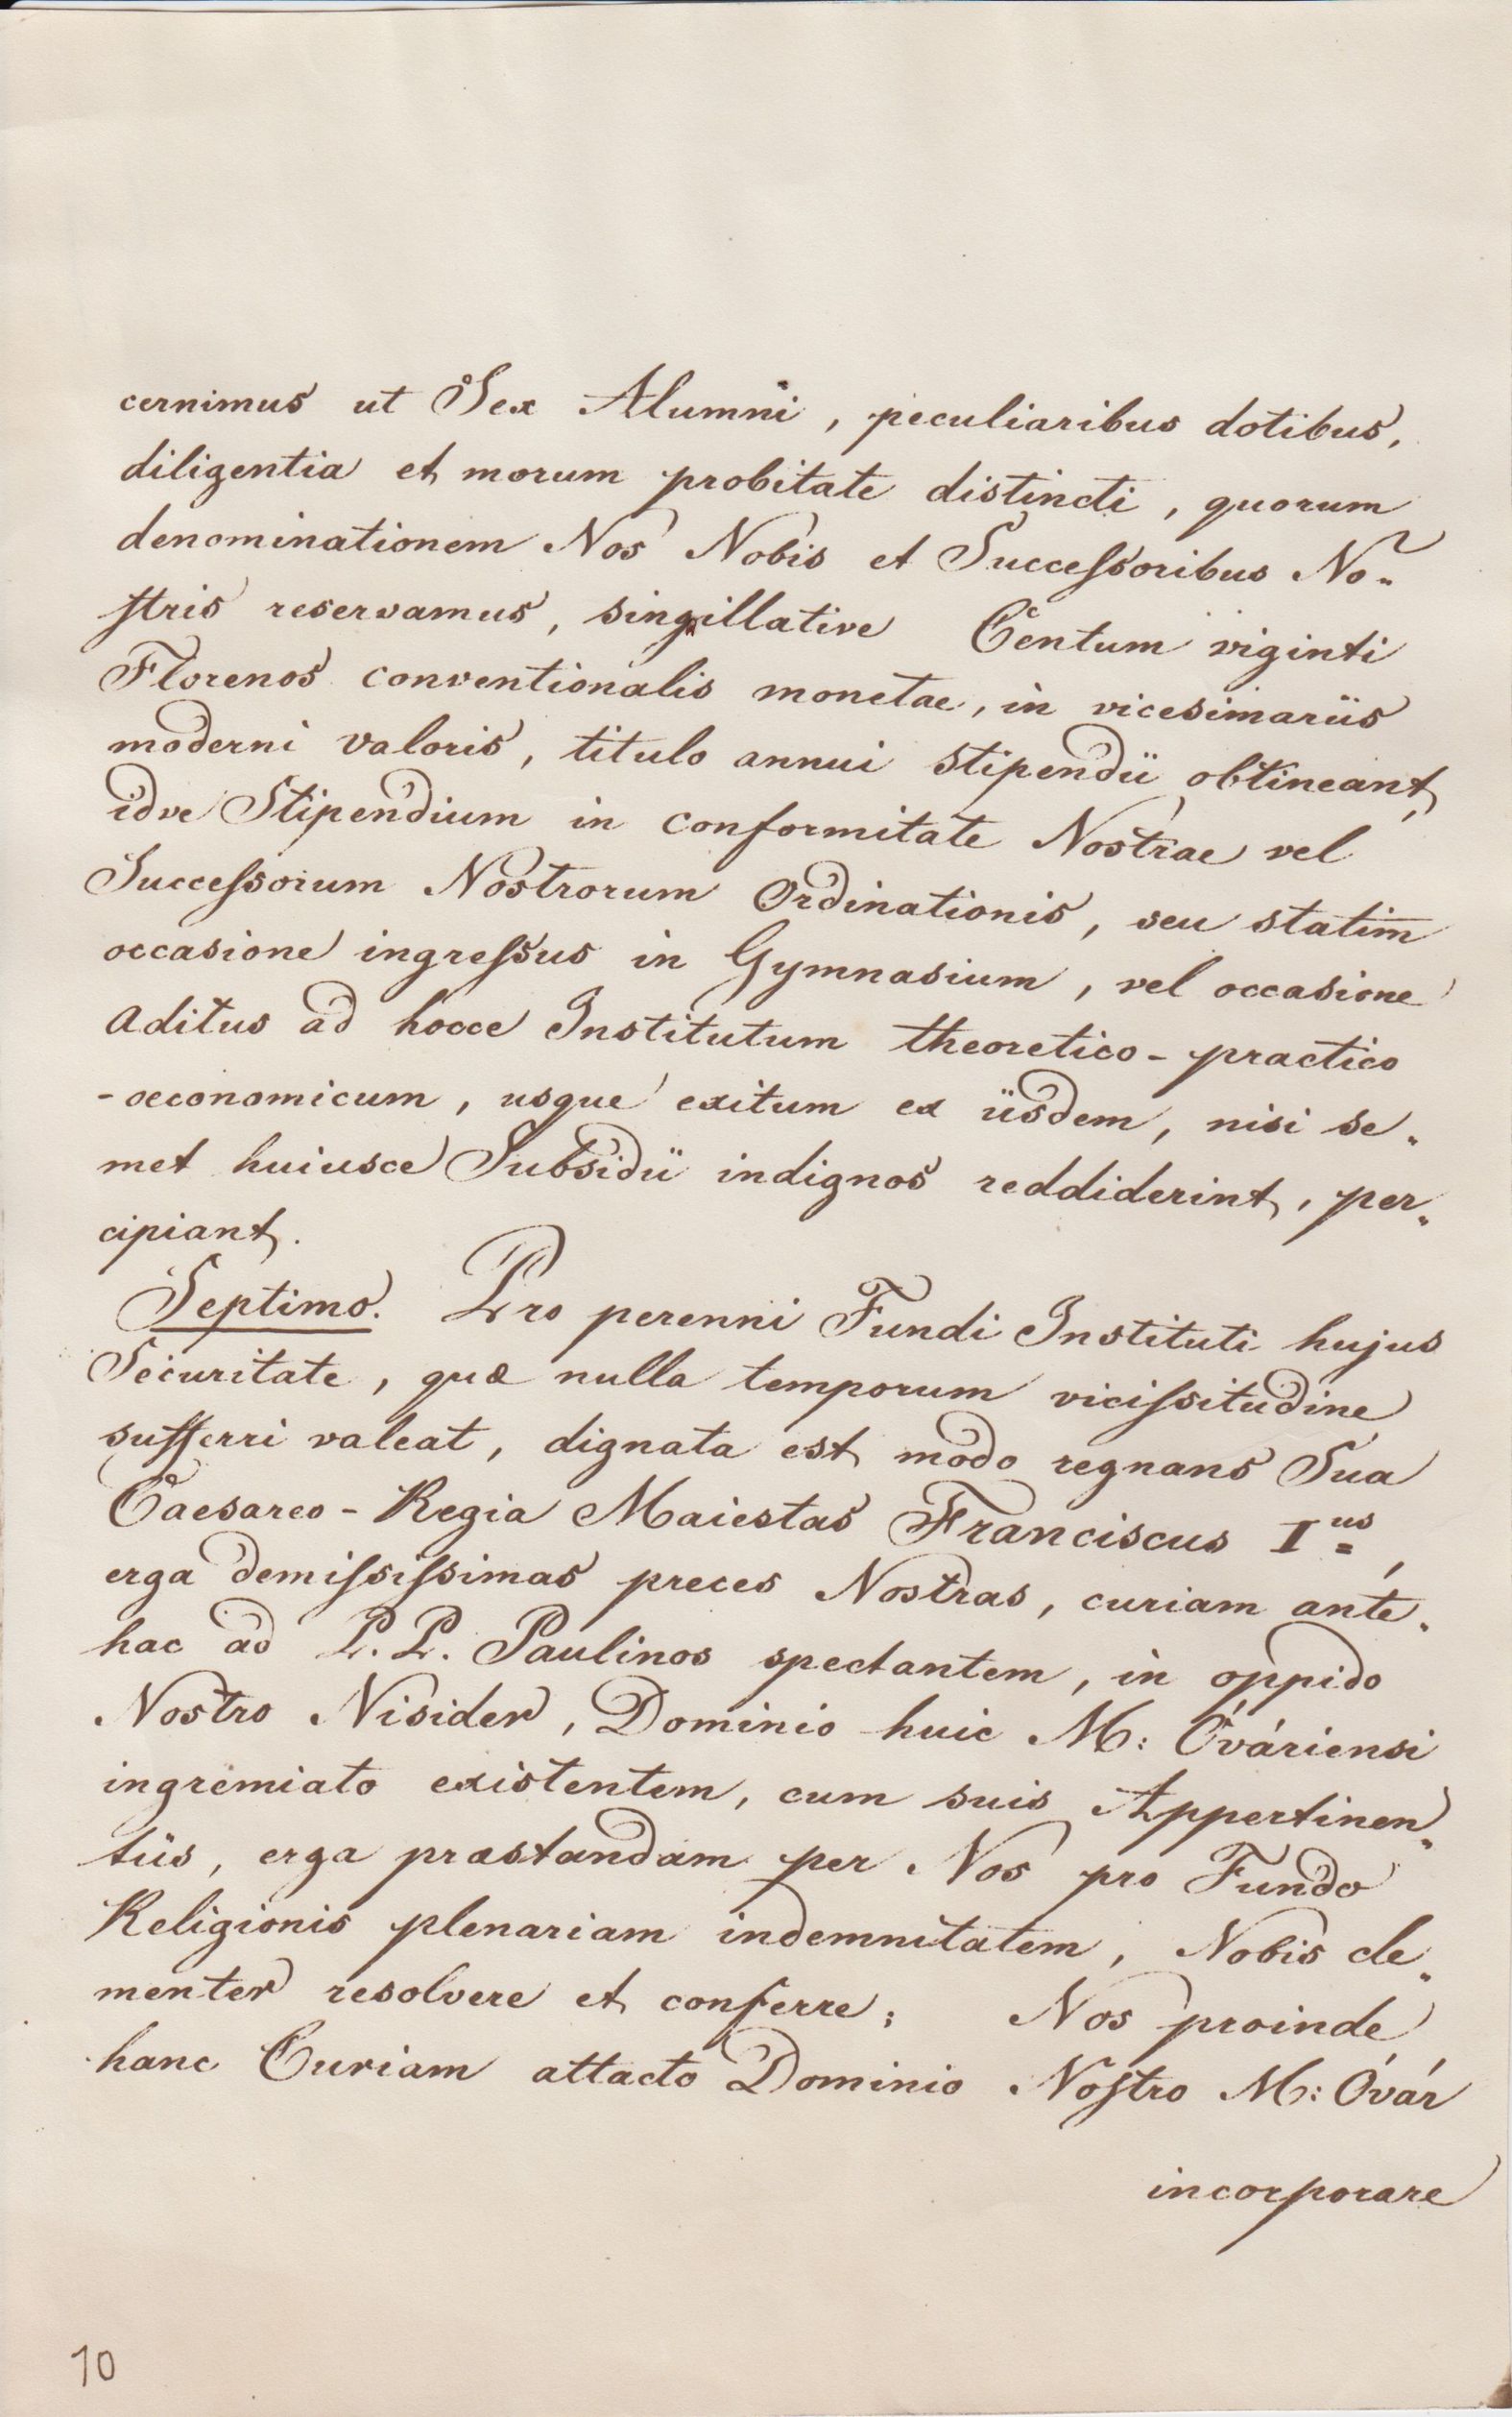 cernimus ut Sex Alumni, peculiaribus dotibus,
diligentia et morum probitate distincti, quorum
denominationem Nos Nobis et Successoribus No„
stris reservamus, singillative Centum viginti
Florenos conventionalis monetae, in vicesimariis
moderni valoris, titulo annui stipendii obtineant,
idve Stipendium in conformitate Nostrae vel
Successorum Nostrorum Ordinationis, seu statim
occasione ingressus in Gymnasium, vel occasione
aditus ad hocce Institutum theoretico-practico
-oeconomicum, usque exitum ex iisdem, nisi se„
met huiusce Subsidii indignos reddiderint, per„
cipiant.
Septimo. Pro perenni Fundi Instituti hujus
Securitate, quæ nulla temporum vicissitudine
sufferri valeat, dignata est modo regnans Sua
Caesareo-Regia Maiestas Franciscus I us,
erga demississimas preces Nostras, curiam ante„
hac ad P.P. Paulinos spectantem, in oppido
Nostro Nisider, Dominio huic M: Óváriensi
ingremiato existentem, cum suis Appertinen„
tiis, erga præstandam per Nos pro Fundo
Religionis plenariam indemnitatem, Nobis cle„
menter resolvere et conferre; Nos proinde
hanc Curiam attacto Dominio Nostro M: Óvár
incorporare
10